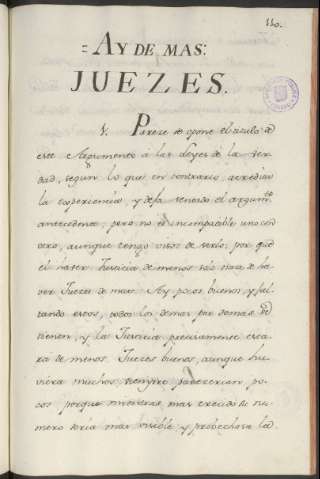 110.
= AY DE MAS:
JUEZES.
Pareze se opone el titulo de
este Argumento á las Leyes de la Ver-
dad, segun lo que en contrario acredita
la experiencia, y desa sentado el argum.to
antecedente; pero no es incompatible uno con
otro, aunque tengo visos de serlo; por que
el haver Justicia de menos nos nota de ha-
ver Juezes de mas. Ay pocos buenos, y fal-
tando estos, todos los demas por demas se
tienen, y la Justicia precisamente esta-
rá de menos. Juezes buenos, aunque hu-
viera muchos, siempre parecerian po-
cos porque mientras mas crecido su nu-
mero seria mas visible y probechosa la